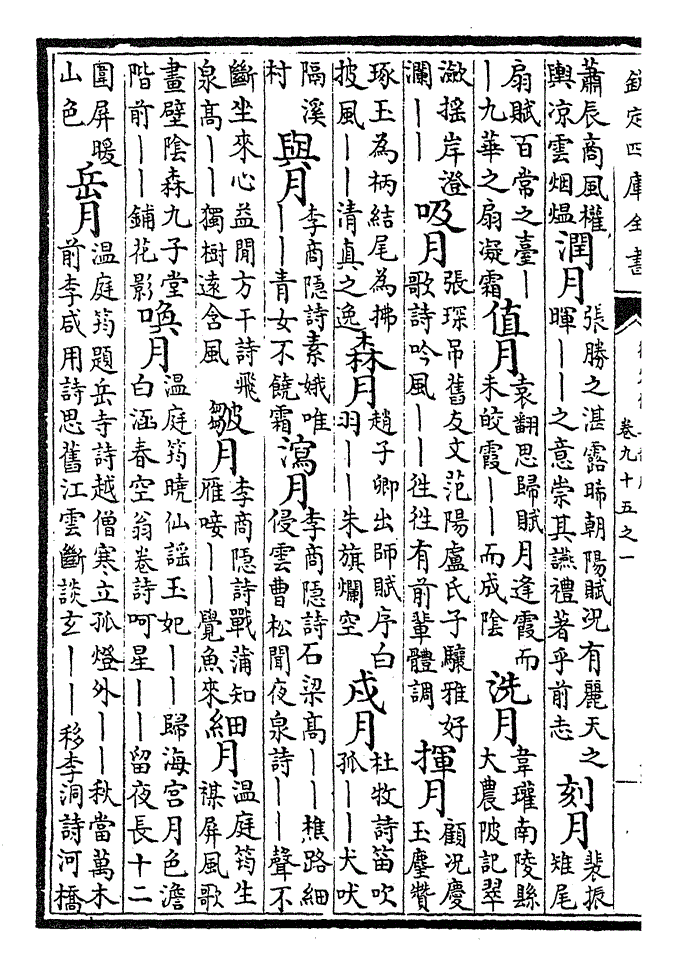 欽定四庫全書
卷九十五之一
蕭辰商風權輿凉雲烟煴 潤月 張勝之湛露晞朝陽賦况有麗天之暉丨丨之意崇其讌禮著乎前志 刻月 裴振雉尾
扇賦百常之臺丨丨九華之扇凝霜 值月 袁翻思歸賦月逢霞而未皎霞丨丨而成陰 洗月 韋瓘南陵縣大農陂記翠
潋摇岸澄瀾丨丨 吸月 張琛吊舊友文范陽盧氏子驤雅好歌詩吟風丨丨徃徃有前輩體調 揮月 顧况慶玉麈贊
琢玉為柄結尾為拂披風丨丨清真之逸 森月 趙子卿出師賦序白羽丨丨朱旗爛空 戍月 杜牧詩笛吹孤丨丨犬吠
隔溪村 與月 李商隐詩素娥唯丨丨青女不饒霜 瀉月 李商隐詩石梁高丨丨樵路細侵雲曹松聞夜泉詩丨丨聲不
斷坐來心益閒方干詩飛泉高丨丨獨樹遠含風 皺月 李商隐詩戰蒲知雁唼丨丨覺魚來 細月 温庭筠生禖屏風歌
畫壁陰森九子堂階前丨丨鋪花影 喚月 温庭筠曉仙謡玉妃丨丨歸海宫月色澹白涵春空翁卷詩呵星丨丨留夜長十二
圍屏暖山色 岳月 温庭筠題岳寺詩越僧寒立孤燈外丨丨秋當萬木前李咸用詩思舊江雲斷談玄丨丨移李洞詩河橋